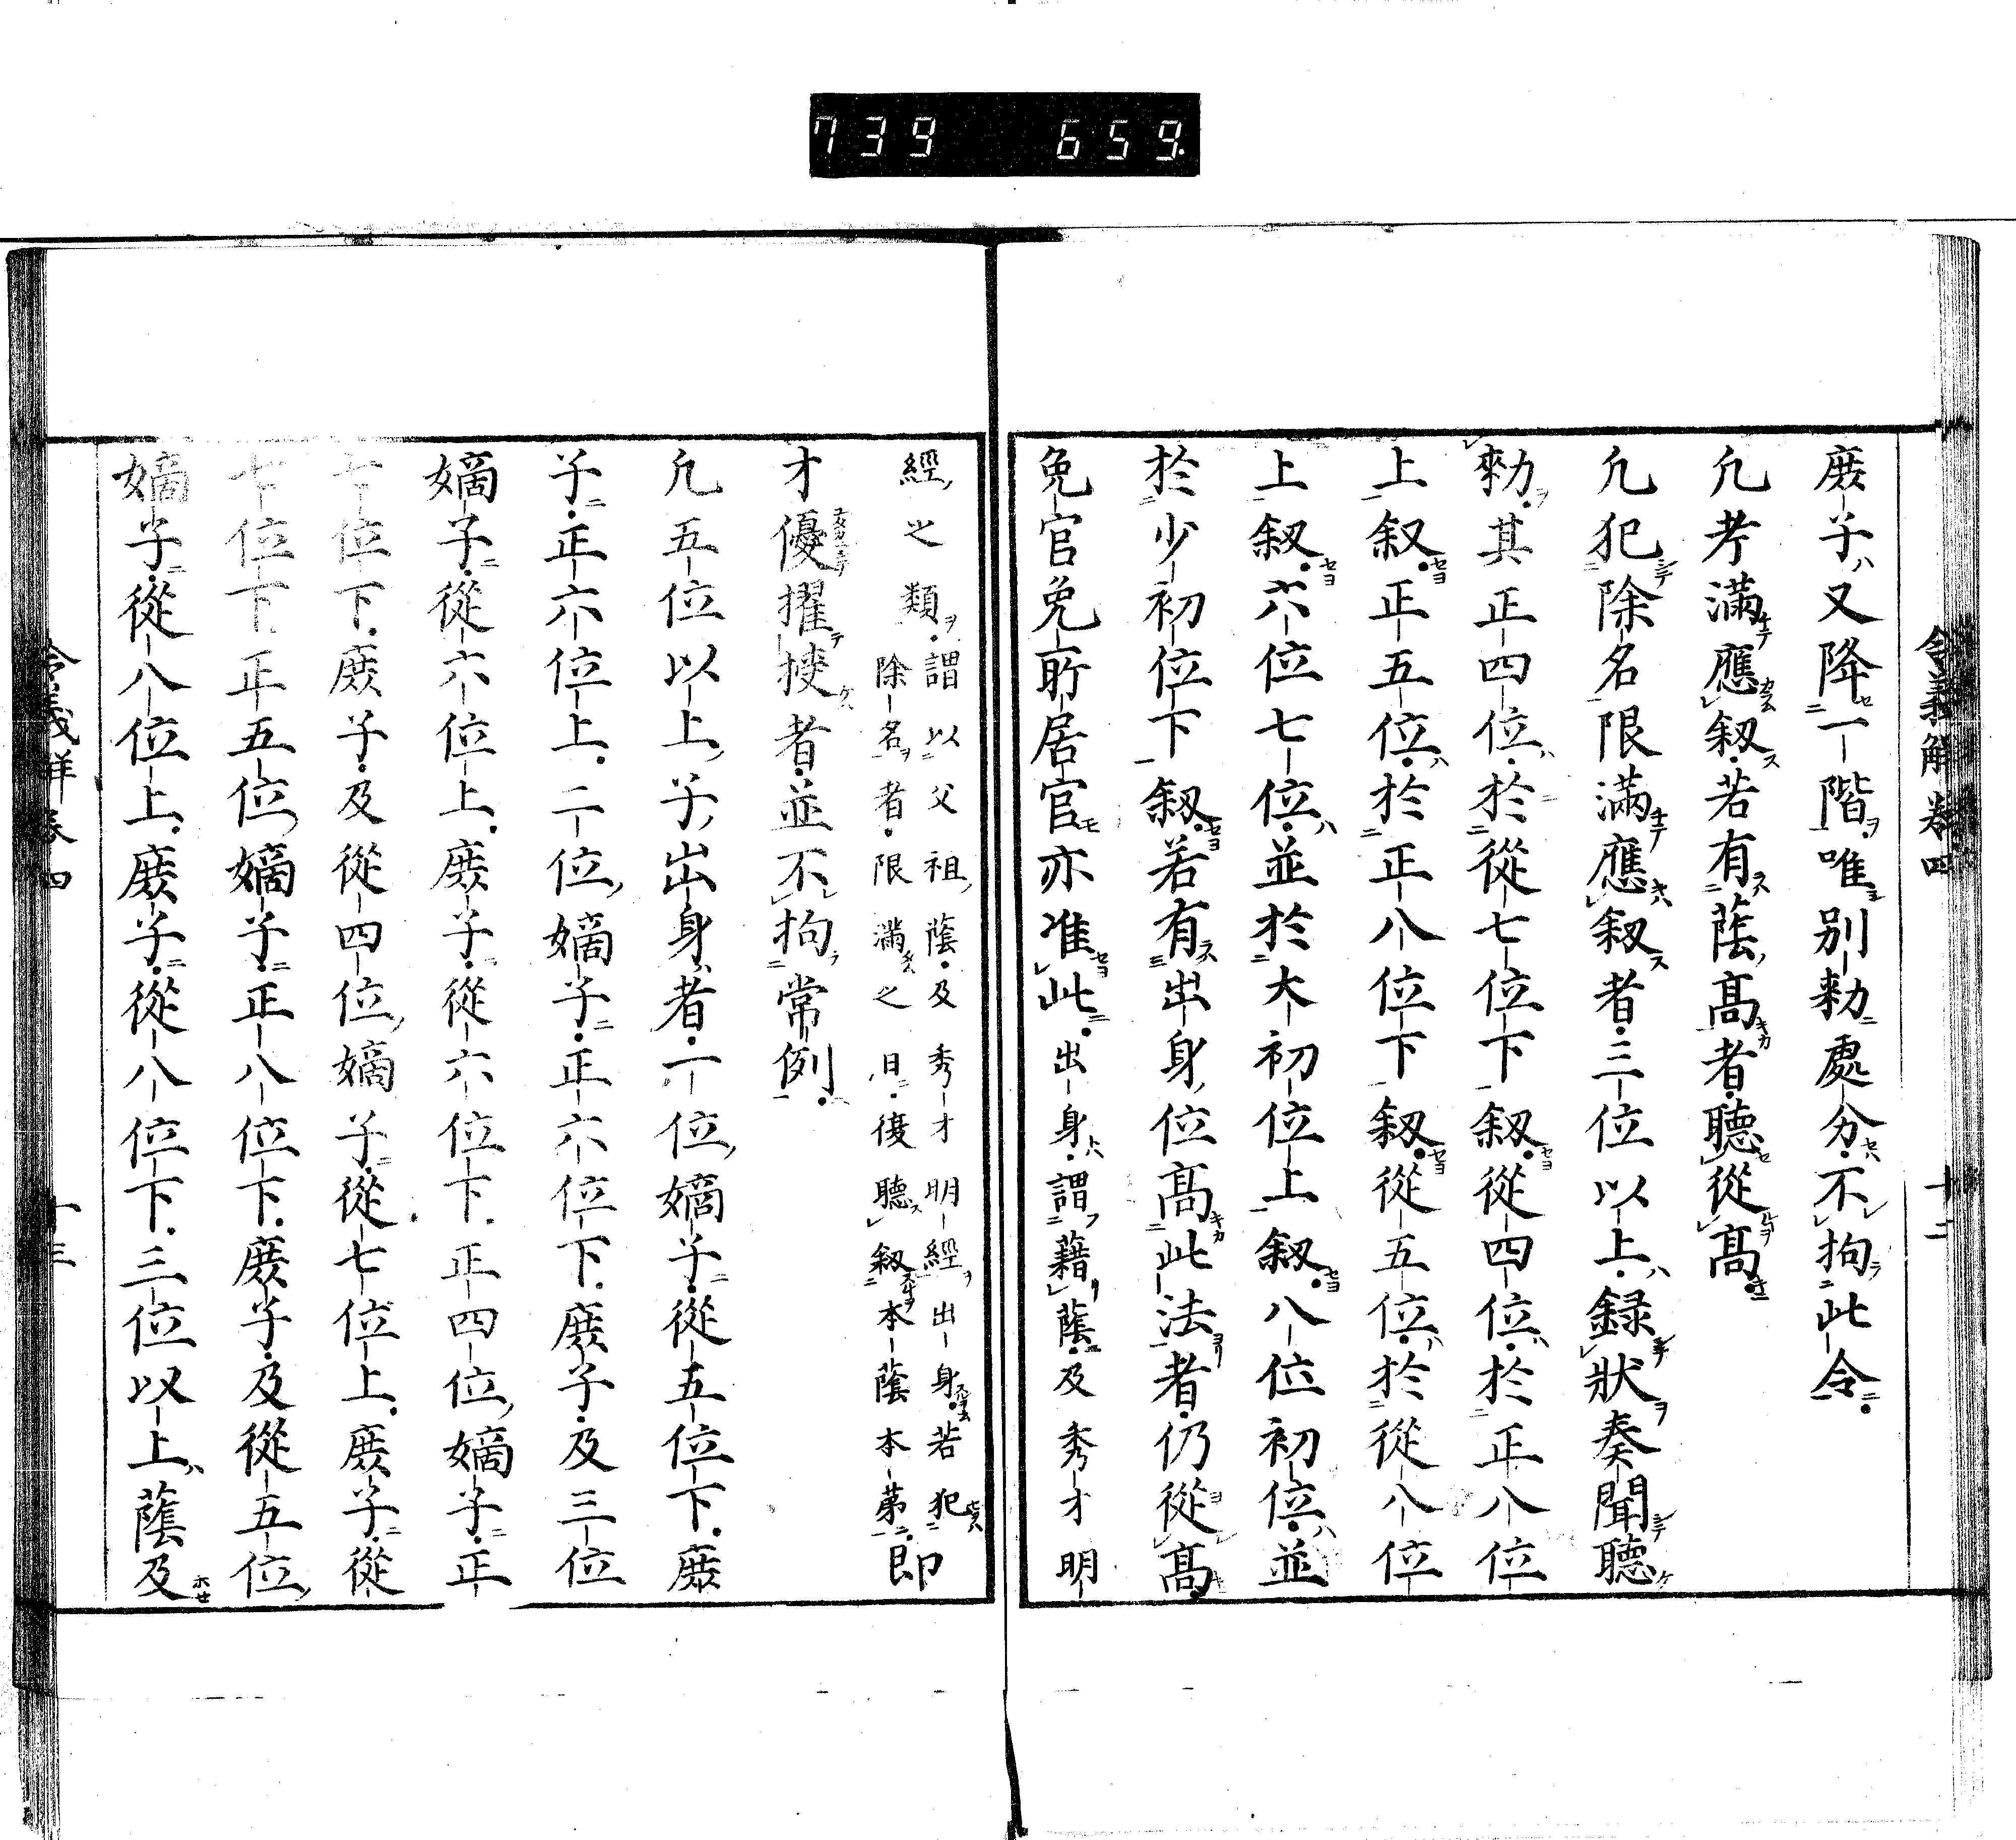 739 659
令義解卷四 十二
庶子又降一階唯別勅處分不拘此令
凡考滿應叙若有蔭高者聽從高
凡犯除名限滿應叙者三位以上錄狀奏聞聽
勅其正四位於從七位下叙從四位於正八位
上叙正五位於正八位下叙從五位於從八位
上叙六位七位並於大初位上叙八位初位並
於少初位下叙若有出身位高此法者仍從高
免官免所居官亦准此出身謂藉蔭及秀才明
經之類謂以父祖蔭及秀才明經出身若犯
除名者限滿之日後聽叙本蔭本第即
才優擢授者並不拘常例
凡五位以上子出身者一位嫡子從五位下庶
子正六位上二位嫡子正六位下庶子及三位
嫡子從六位上庶子從六位下正四位嫡子正
七位下庶子及從四位嫡子從七位上庶子從
七位下正五位嫡子正八位下庶子及從五位
嫡子從八位上庶子從八位下三位以上蔭及
令義解卷四 十三